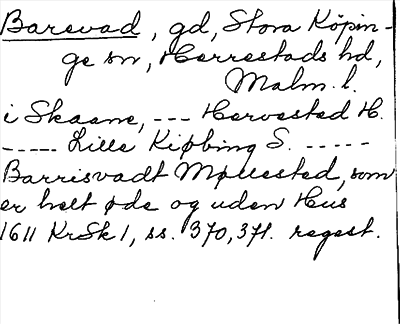 Barevad, gd, Stora Köpin-
ge sn, Herrestads hd,
Malm. l.
i Skaane, --- Herrested H.
----- Lille Kiøbing S. -----
Barrisvadt Møllested, som
er helt øde og uden Hus
1611 KrSk 1, ss. 370, 371. regest.